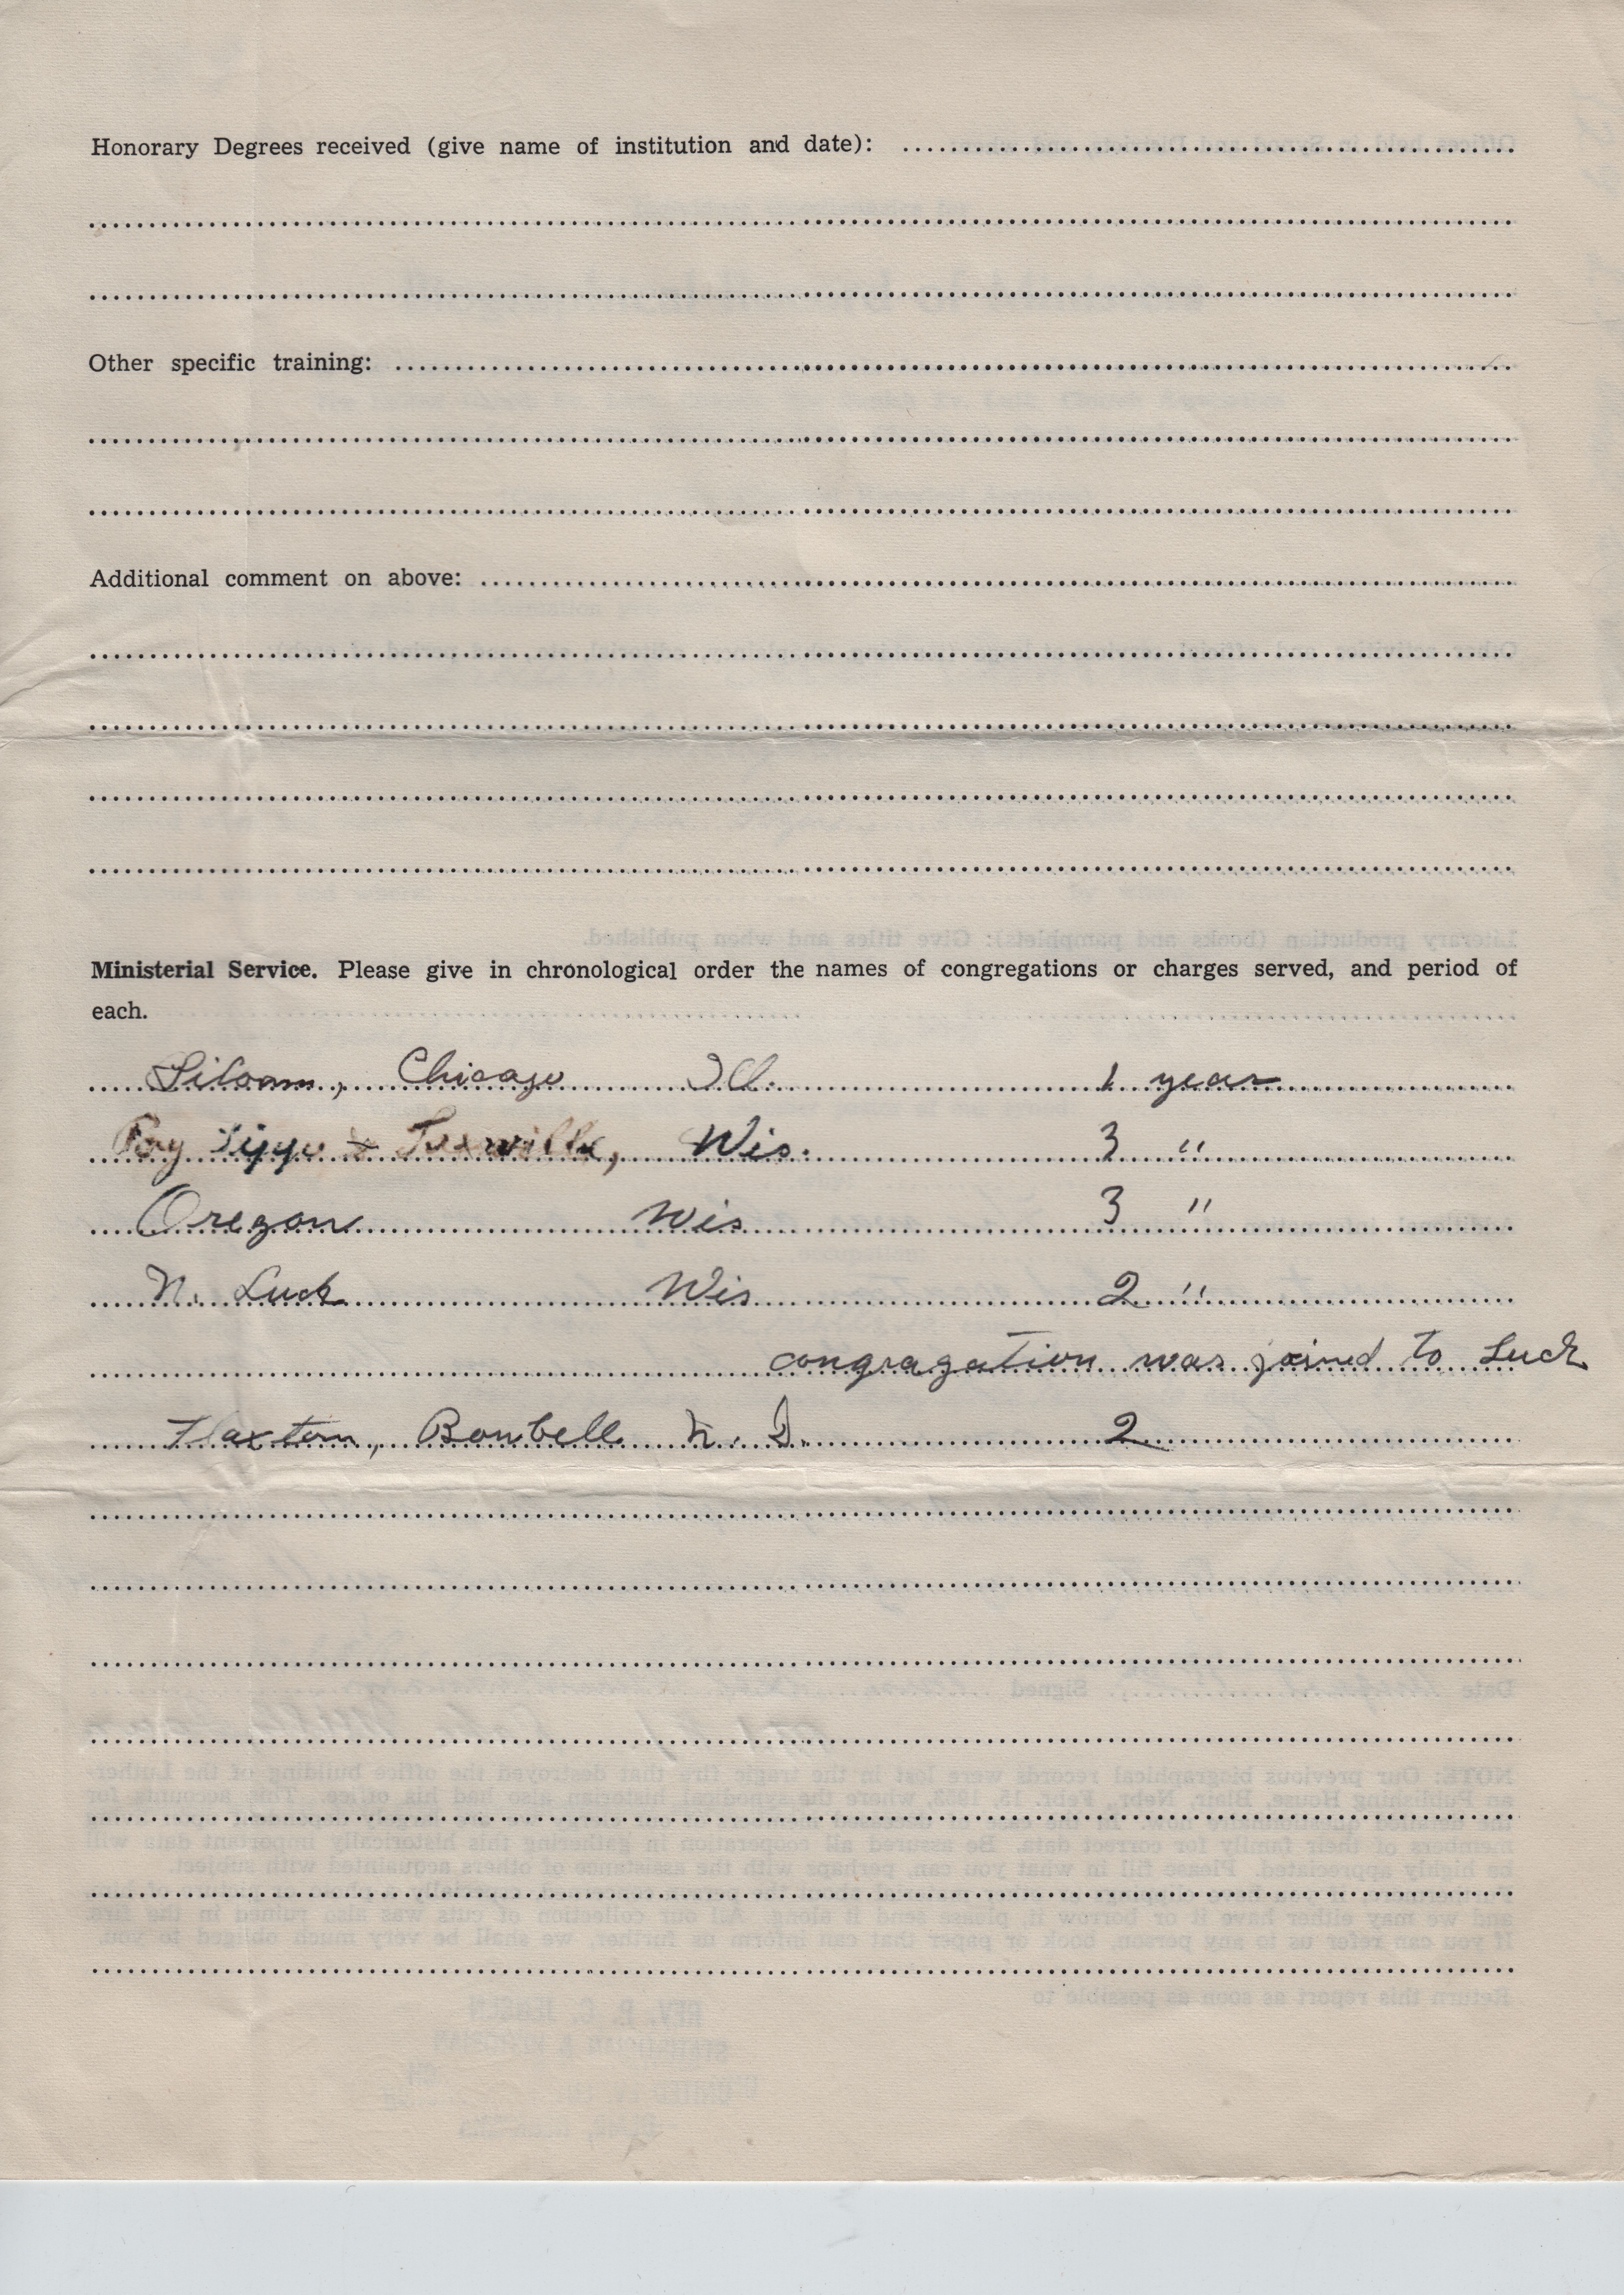 Honorary Degrees received (give name of institution and date):
Other specific training:
Additional comment on above:
Ministerial Service. Please give in chronological order the names of congregations or charges served, and period of
each.
Siloam, Chicago Ill. 1 year
Poy Sippi & Wis. 3 "
Oregon Wis 3 "
N. Luck Wis 2 "
congragation was joined to Luck
Flaxton, Bowbell N. D. 2